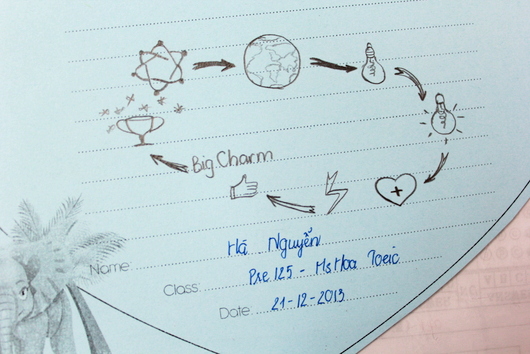 Big.Charm
Name: Hà Nguyễn
Class: Pre 125 - Ms Hoa Toeic
Date: 21-12-2013